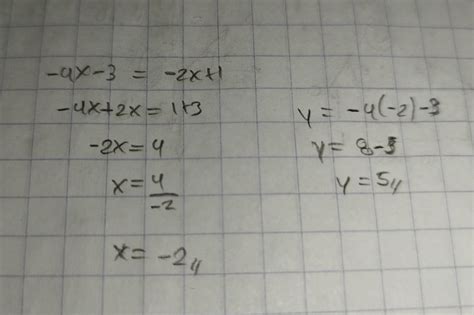 -4x-3 = -2x+1
-4x+2x = 1+3
-2x = 4
x = 4/-2
x = -2,,
y = -4(-2)-3
y = 8-3
y = 5,,